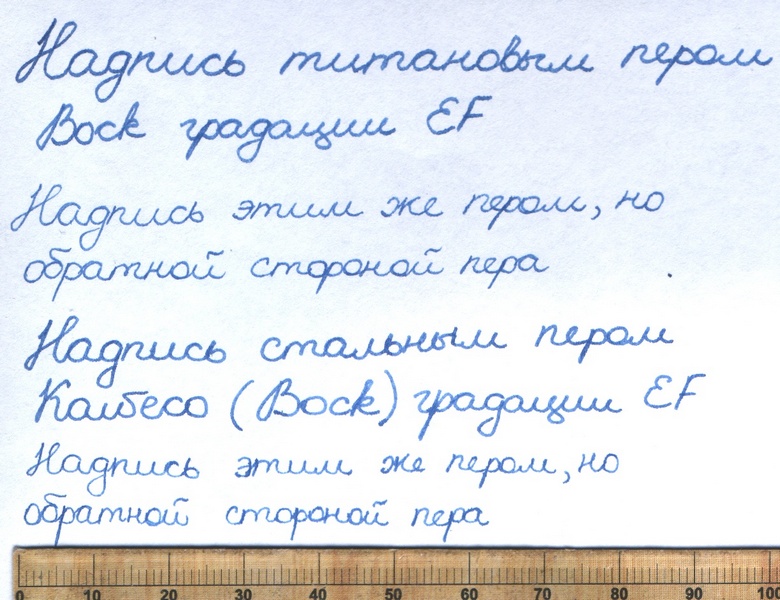 Надпись титановым пером
Bock градации EF
Надпись этим же пером, но
обратной стороной пера
Надпись стальным пером
Kaweco (Bock) градации EF
Надпись этим же пером, но
обратной стороной пера
0 10 20 30 40 50 60 70 80 90 100